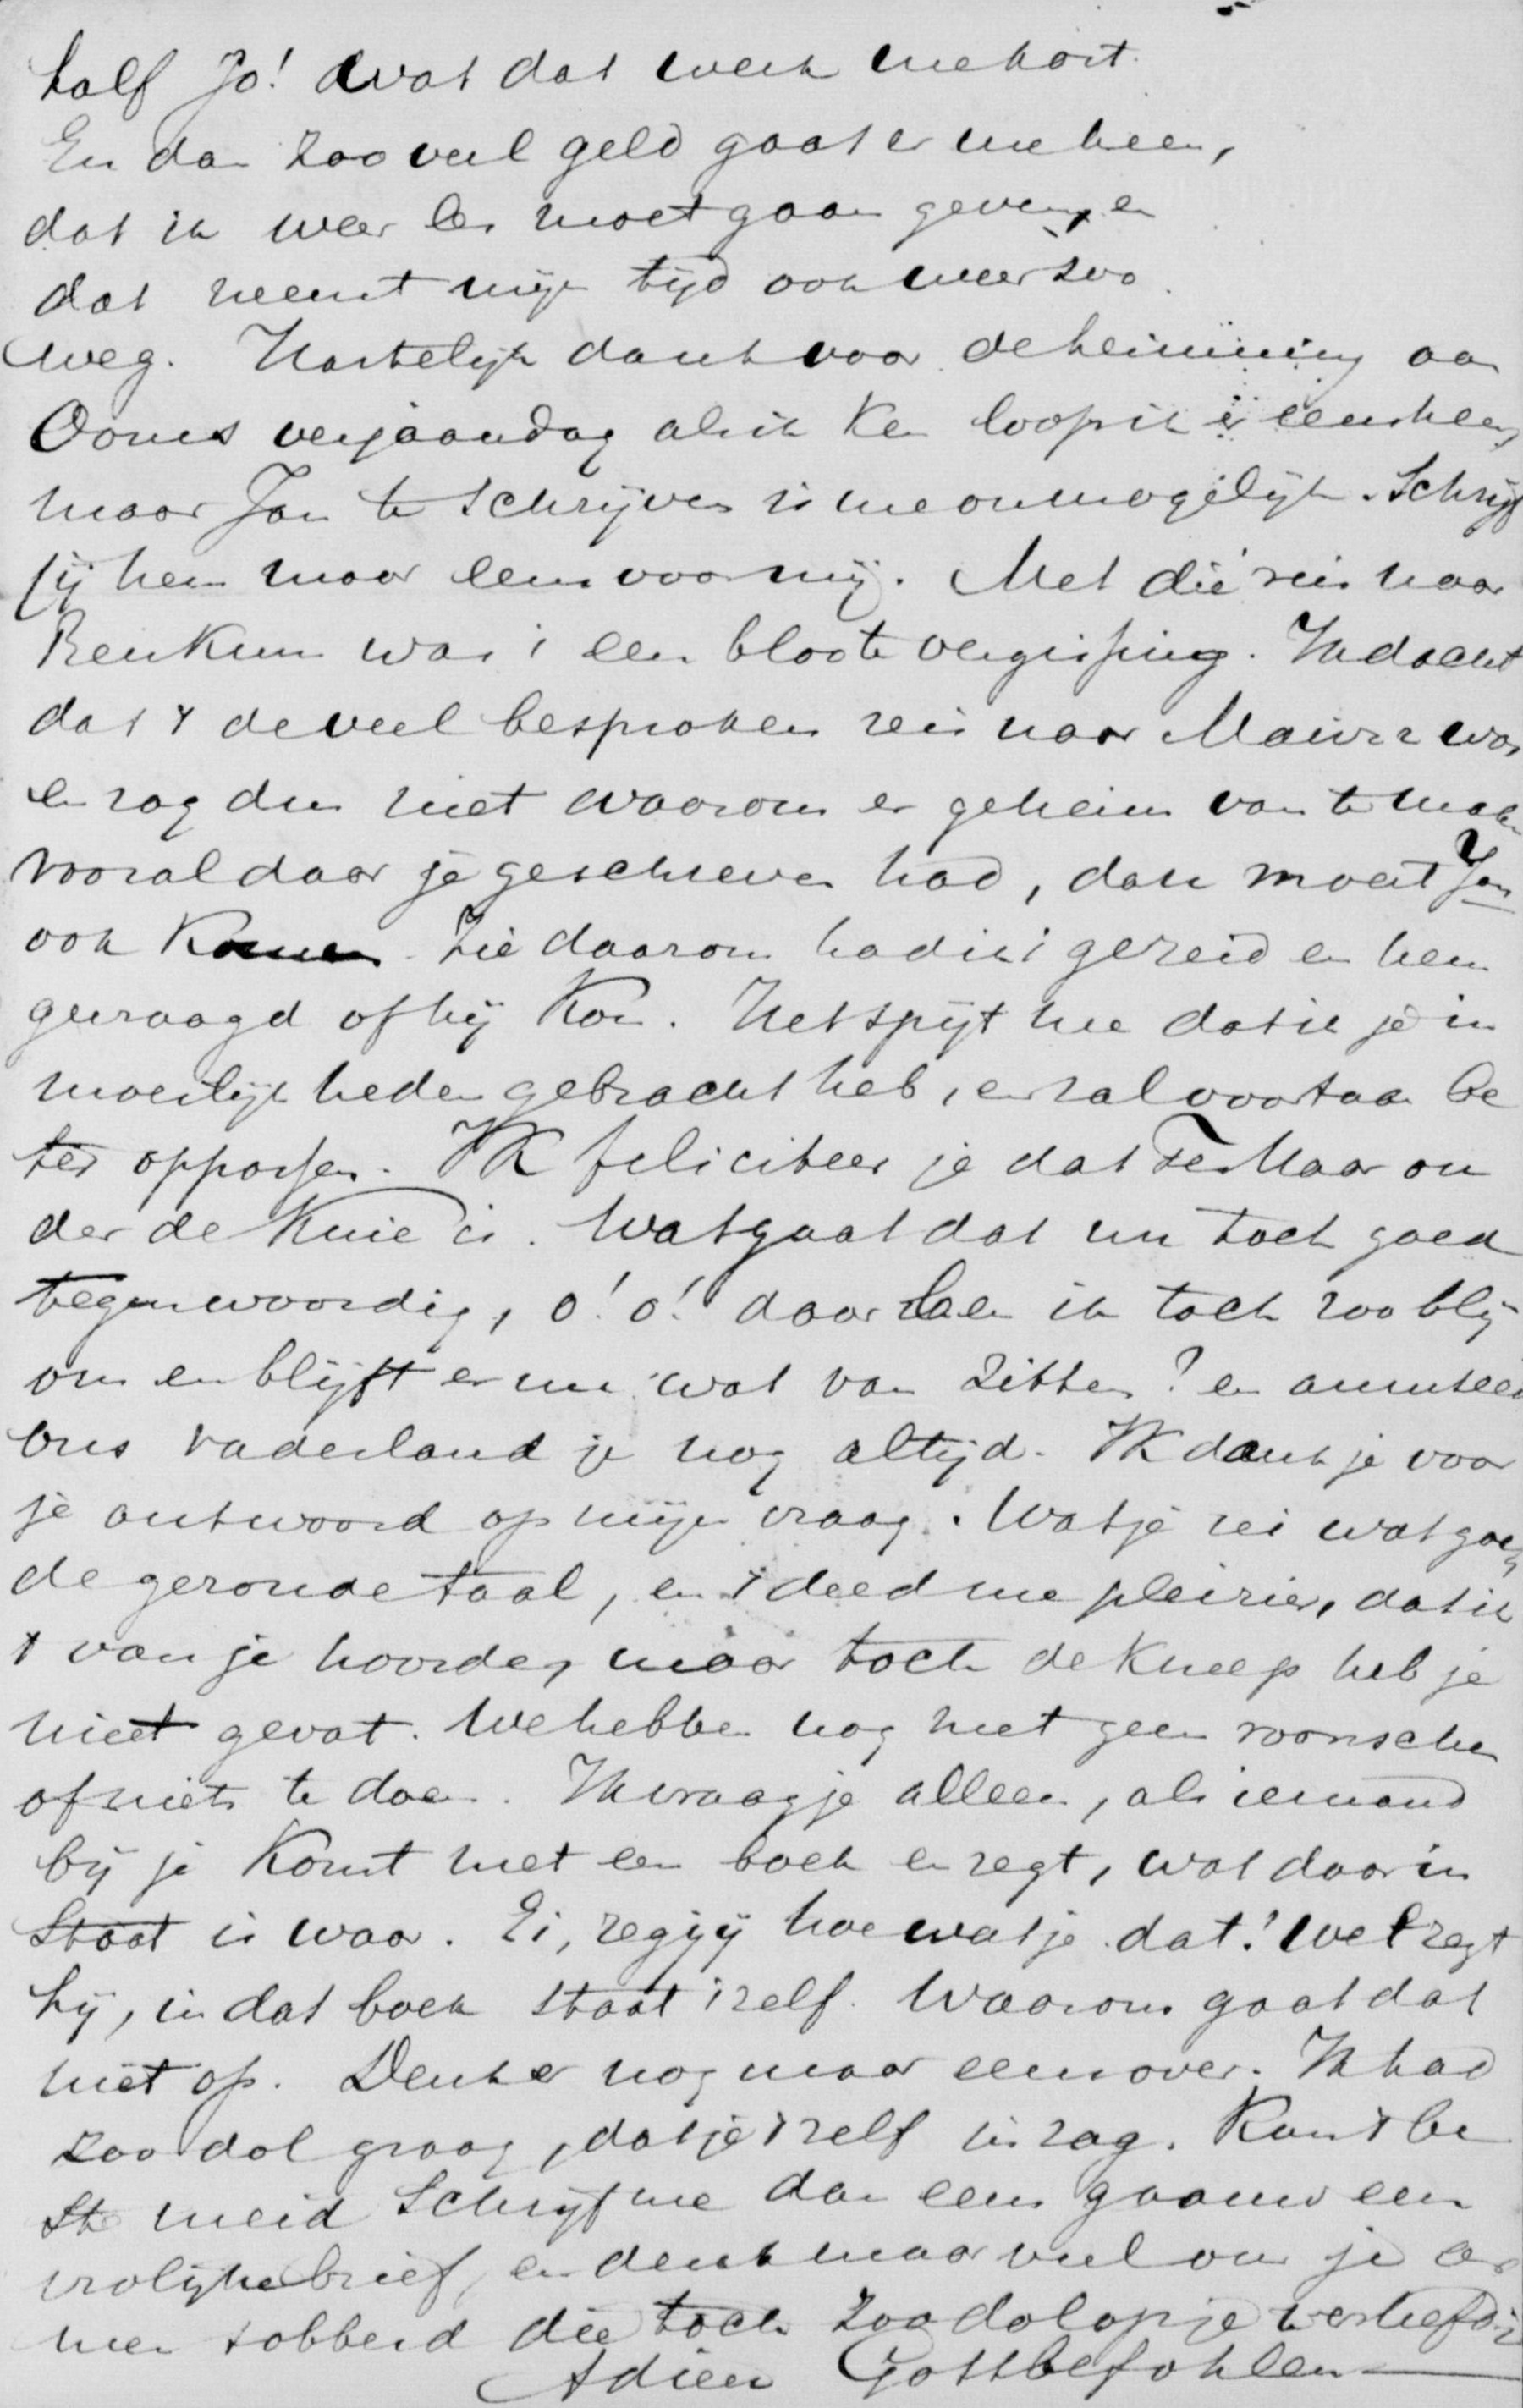 half Jo! wat dat werk me kost.
En dan zooveel geld gaat er mee heen,
dat ik weer les moet gaan geven, en
dat neemt mijn tijd ook weer zoo
weg. Hartelijk dank voor de herinnering aan
Ooms verjaardag als ik kan loop ik er eens heen,
maar Jan te schrijven is me onmogelijk. Schrijf
jij hem maar eens voor mij. Met die reis naar
Renkum was 't een bloote vergissing. Ik dacht
dat 't de veel besproken reis naar Mainz was
en zag dus niet waarom er geheim van te maken
vooral daar je geschreven had, dan moest Jan
ook komen. Zie daarom had ik 't gezeid en hem
gevraagd of hij kon. Het spijt me dat ik je in
moeilijkheden gebracht heb, en zal voortaan be
ter oppassen. Ik feliciteer je dat Ter Haar on
der de knie is. Wat gaat dat nu toch goed
tegenwoordig, o! o! daar ben ik toch zoo blij
om en blijft er nu wat van zitten? en amuseert
ons vaderland je nog altijd. Ik dank je voor
je antwoord op mijn vraag. Wat je zei was goe
de gezonde taal, en 't deed me pleizier, dat ik
't van je hoorde, maar toch de kneep heb je
niet gevat. We hebben nog met geen roomschen
of niets te doen. Ik vraag je alleen, als iemand
bij je komt met een boek en zegt, wat daar in
staat is waar. Ei, zeg jij hoe weet je dat? Wel zegt
hij, in dat boek staat 't zelf. Waarom gaat dat
niet op. Denk er nog maar eens over. Ik had
zoo dol graag, dat je 't zelf inzag. Kom 't be
ste meid schrijf me dan eens gaauw een
vrolijke brief, en denk maar veel om je ar
men tobberd die toch zoo dol op je verliefd is
Adieu Gottbefohlen